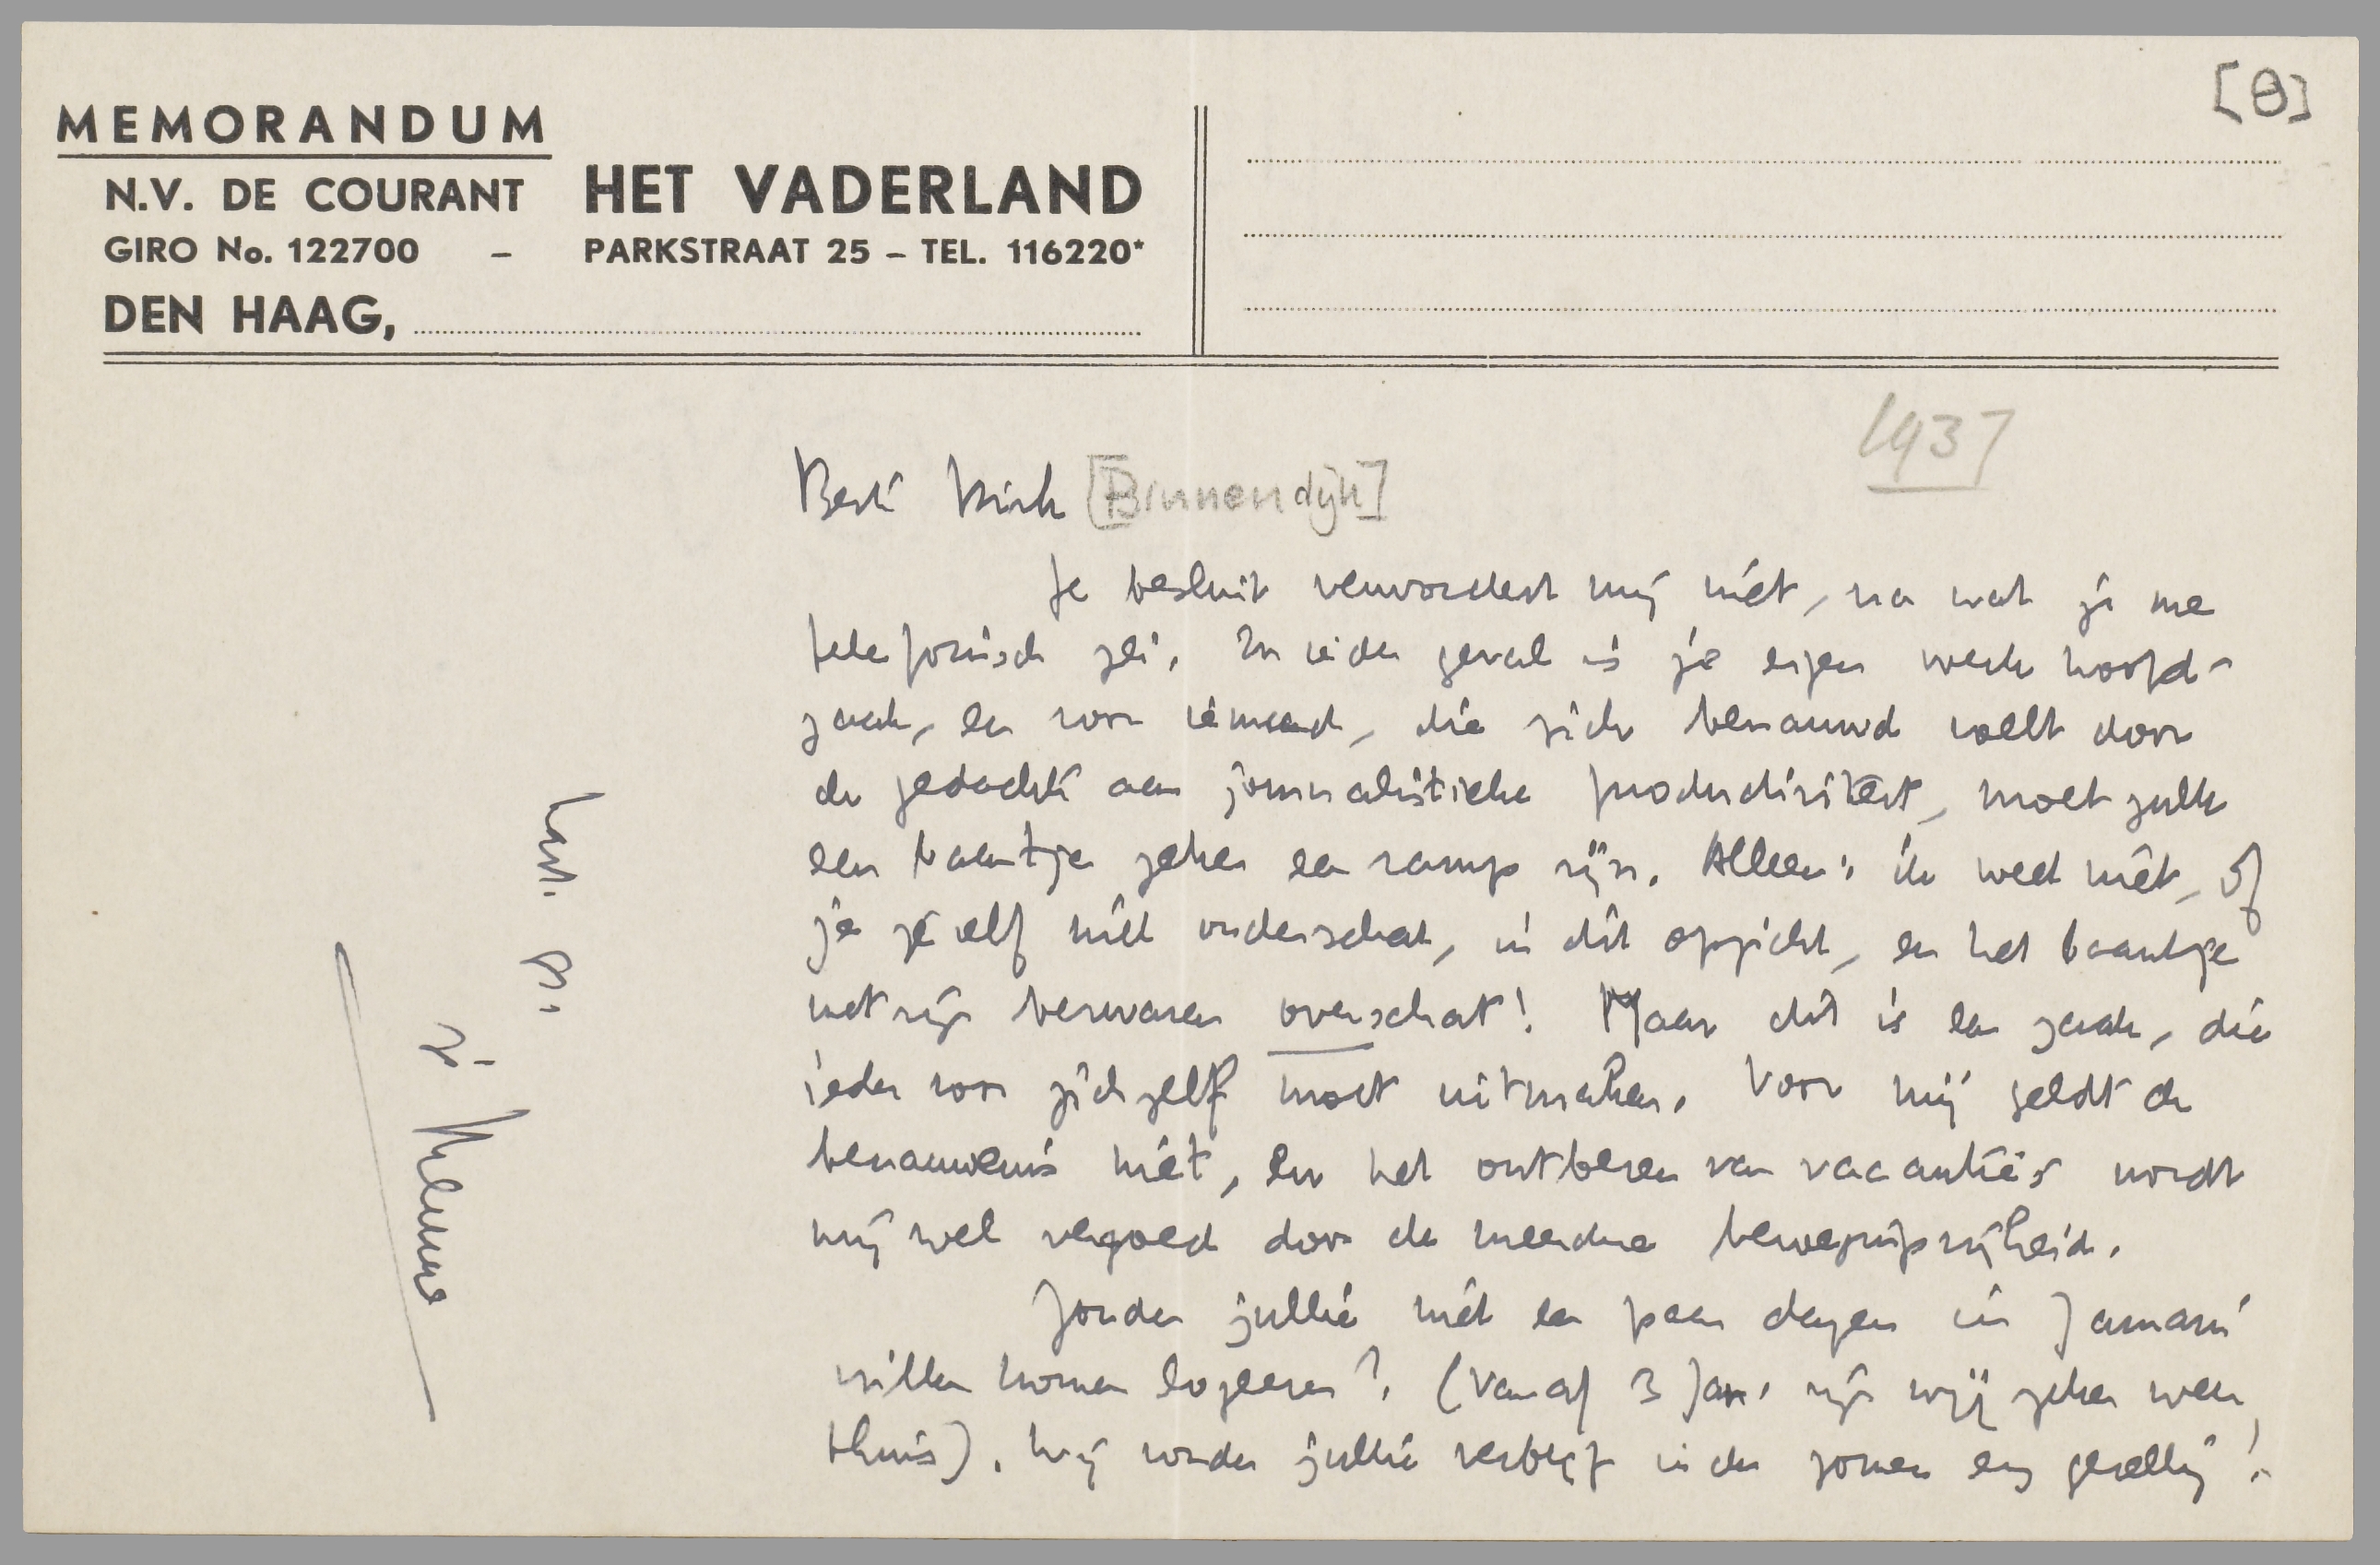 [8]
MEMORANDUM
N.V. DE COURANT HET VADERLAND
GIRO No. 122700 – PARKSTRAAT 25 – TEL. 116220*
DEN HAAG,
1937
Beste Dirk [Binnendijk]
Je besluit verwondert mij niet, na wat je me
telefonisch zei. In ieder geval is je eigen werk hoofd-
zaak, en voor iemand, die zich benauwd voelt door
de gedachte aan journalistieke productiviteit, moet zulk
een baantje zeker een ramp zijn. Alleen: ik weet niet, of
je jezelf niet onderschat, in dit opzicht, en het baantje
met zijn bezwaren overschat! Maar dit is een zaak, die
ieder voor zichzelf moet uitmaken. Voor mij geldt de
benauwenis niet, en het ontberen van vacantie's wordt
mij wel vergoed door de meerdere bewegingsvrijheid.
Zouden jullie niet een paar dagen in Januari
willen komen logeeren? (Vanaf 3 Jan. zijn wij zeker weer
thuis). Wij vonden jullie verblijf in den zomer erg gezellig!
Hart. gr.
je
Menno